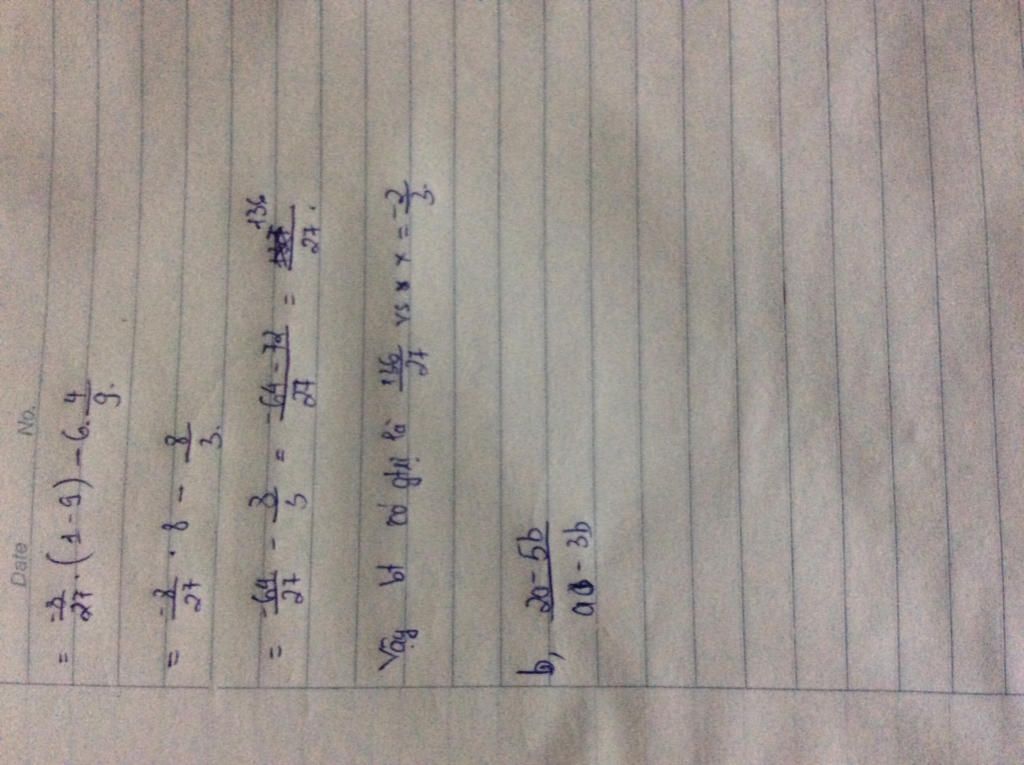 Date No.
= -8/27 . (1 - 9) - 6. 4/9.
= -8/27 . 8 - 8/3.
= -64/27 - 8/3 = -64 - 72/27 = 136/27.
Vậy bt có gtrị là 136/27 vs x x = -2/3.
b, 2a - 5b/a - 3b